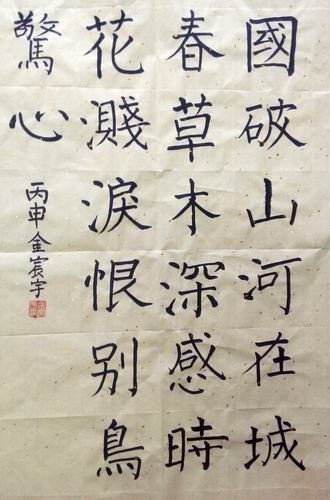 國破山河在城
春草木深感時
花濺淚恨别鳥
驚心
丙申金宸宇